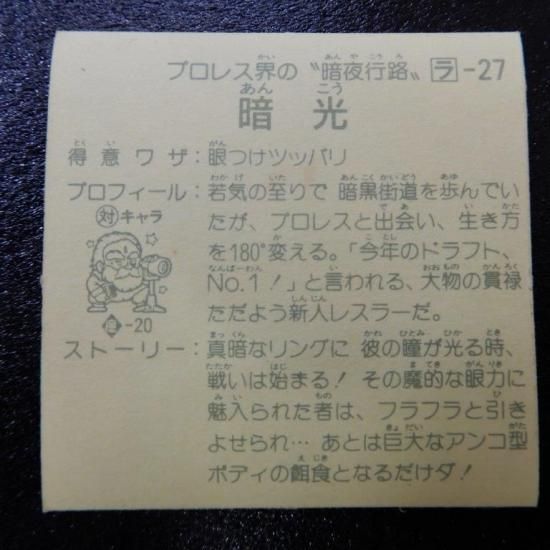 プロレス界の〝暗夜行路〟 ラ-27
暗光
得意ワザ：眼つけツッパリ
プロフィール：若気の至りで 暗黒街道を歩んでい
たが、プロレスと出会い、生き方
を180°変える。「今年のドラフト、
No.1！」と言われる、大物の貫禄
ただよう新人レスラーだ。
対キャラ
-20
ストーリー：真暗なリングに 彼の瞳が光る時、
戦いは始まる！ その魔的な眼力に
魅入られた者は、フラフラと引き
よせられ… あとは巨大なアンコ型
ボディの餌食となるだけダ！